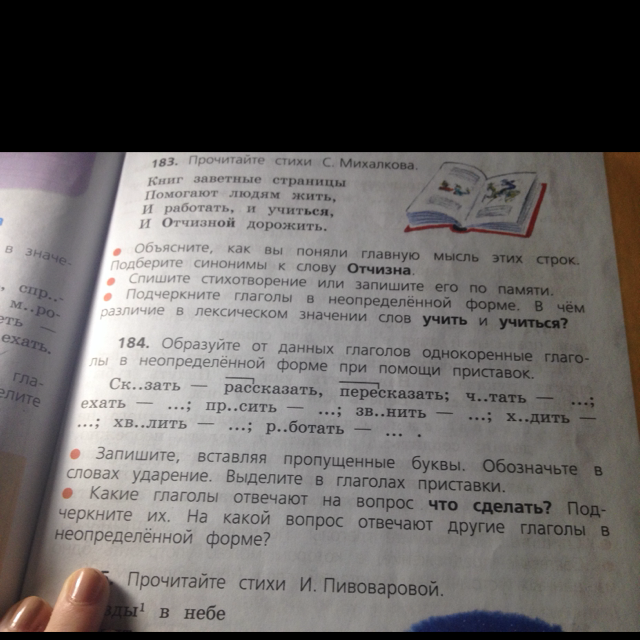 в значе-
спр..-
м..ро-
еть —
ехать.
гла-
елите
183. Прочитайте стихи С. Михалкова.
Книг заветные страницы
Помогают людям жить,
И работать, и учиться,
И Отчизной дорожить.
Объясните, как вы поняли главную мысль этих строк.
Подберите синонимы к слову Отчизна.
Спишите стихотворение или запишите его по памяти.
Подчеркните глаголы в неопределённой форме. В чём
различие в лексическом значении слов учить и учиться?
184. Образуйте от данных глаголов однокоренные глаго-
лы в неопределённой форме при помощи приставок.
Ск..зать — рассказать, пересказать; ч..тать — ...;
ехать — ...; пр..сить — ...; зв..нить — ...; х..дить —
...; хв..лить — ...; р..ботать — ... .
Запишите, вставляя пропущенные буквы. Обозначьте в
словах ударение. Выделите в глаголах приставки.
Какие глаголы отвечают на вопрос что сделать? Под-
черкните их. На какой вопрос отвечают другие глаголы в
неопределённой форме?
Прочитайте стихи И. Пивоваровой.
зды¹ в небе